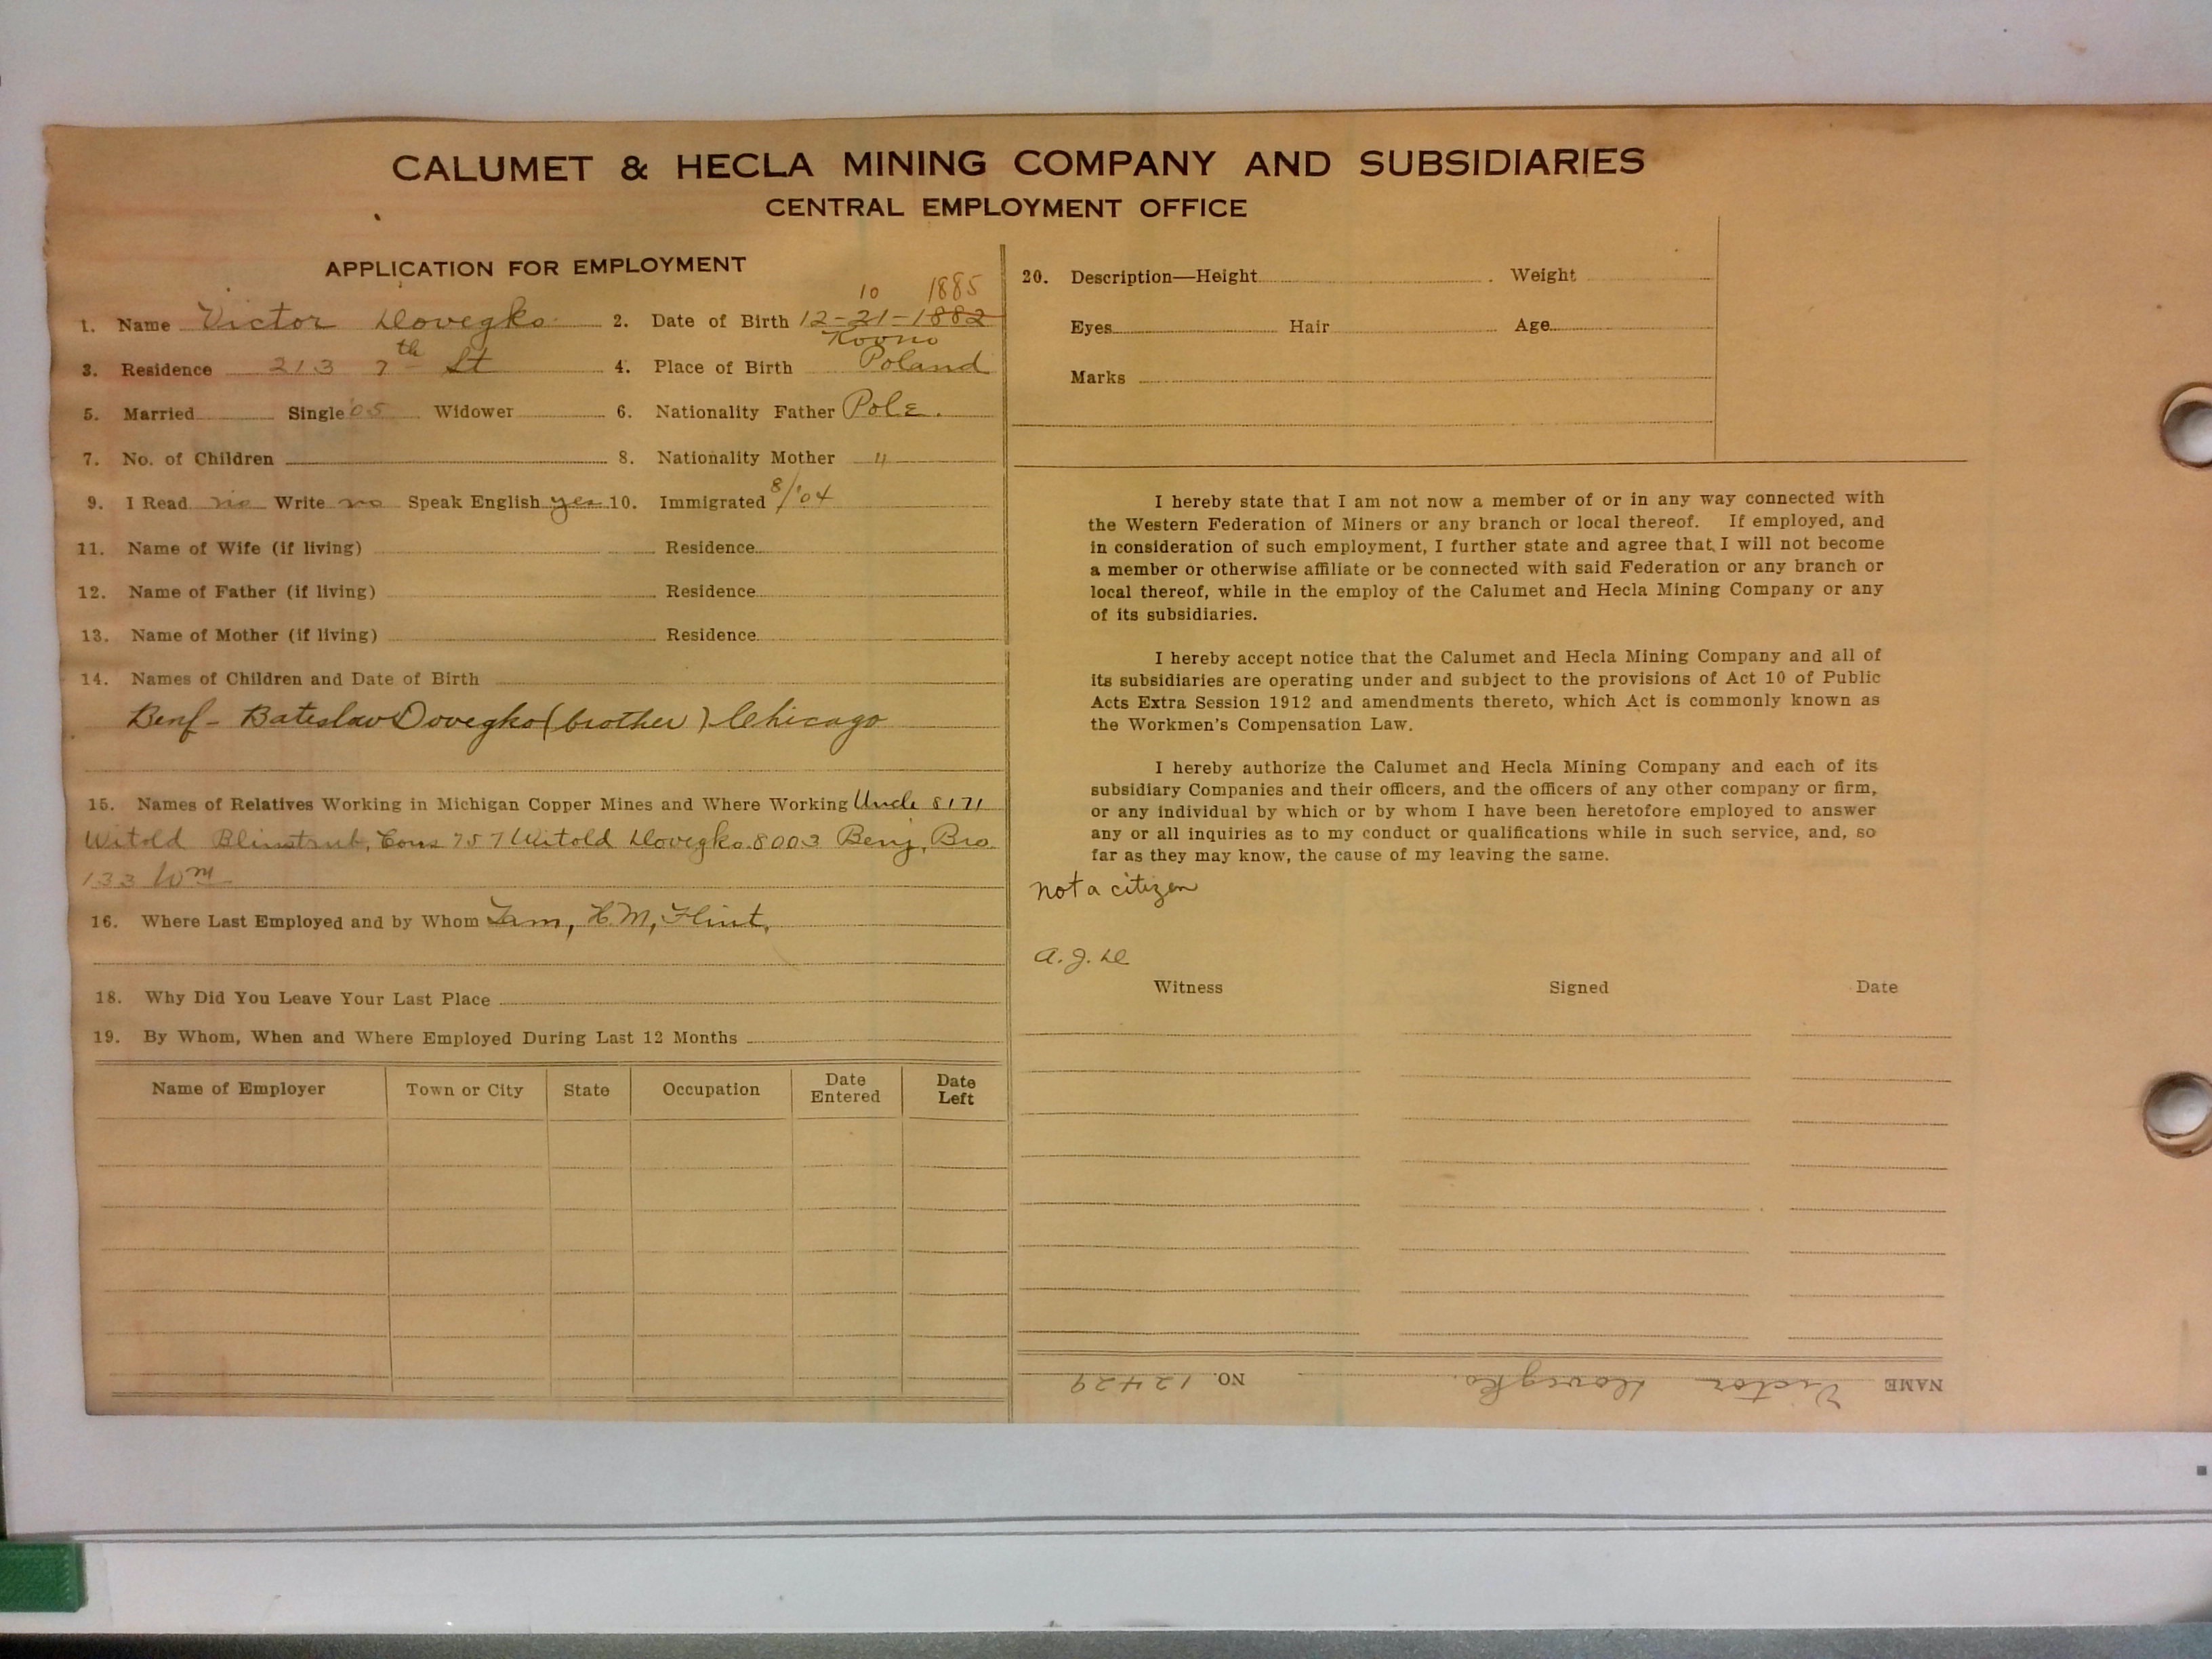 CALUMET & HECLA MINING COMPANY AND SUBSIDIARIES
CENTRAL EMPLOYMENT OFFICE
APPLICATION FOR EMPLOYMENT
10 1885
1. Name Victor Dovegko 2. Date of Birth 12-21-1882
Kovno
3. Residence 213 7th St 4. Place of Birth Poland
5. Married Single '05 Widower 6. Nationality Father Pole.
7. No. of Children 8. Nationality Mother "
9. I Read no Write no Speak English yes 10. Immigrated 8/'04
11. Name of Wife (if living) Residence
12. Name of Father (if living) Residence
13. Name of Mother (if living) Residence
14. Names of Children and Date of Birth
Benf- Bateslaw Dovegko (brother) Chicago
15. Names of Relatives Working in Michigan Copper Mines and Where Working Uncle 8171
Witold Blinstrub, Cous 757 Witold Dovegko. 8003 Benj, Bro.
133 Wm
16. Where Last Employed and by Whom Tam, H.M, Flint,
18. Why Did You Leave Your Last Place
19. By Whom, When and Where Employed During Last 12 Months
Name of Employer Town or City State Occupation Date Entered Date Left
20. Description—Height Weight
Eyes Hair Age
Marks
I hereby state that I am not now a member of or in any way connected with
the Western Federation of Miners or any branch or local thereof. If employed, and
in consideration of such employment, I further state and agree that I will not become
a member or otherwise affiliate or be connected with said Federation or any branch or
local thereof, while in the employ of the Calumet and Hecla Mining Company or any
of its subsidiaries.
I hereby accept notice that the Calumet and Hecla Mining Company and all of
its subsidiaries are operating under and subject to the provisions of Act 10 of Public
Acts Extra Session 1912 and amendments thereto, which Act is commonly known as
the Workmen's Compensation Law.
I hereby authorize the Calumet and Hecla Mining Company and each of its
subsidiary Companies and their officers, and the officers of any other company or firm,
or any individual by which or by whom I have been heretofore employed to answer
any or all inquiries as to my conduct or qualifications while in such service, and, so
far as they may know, the cause of my leaving the same.
not a citizen
A. J. D
Witness Signed Date
NAME Victor Dovegko. NO. 12429